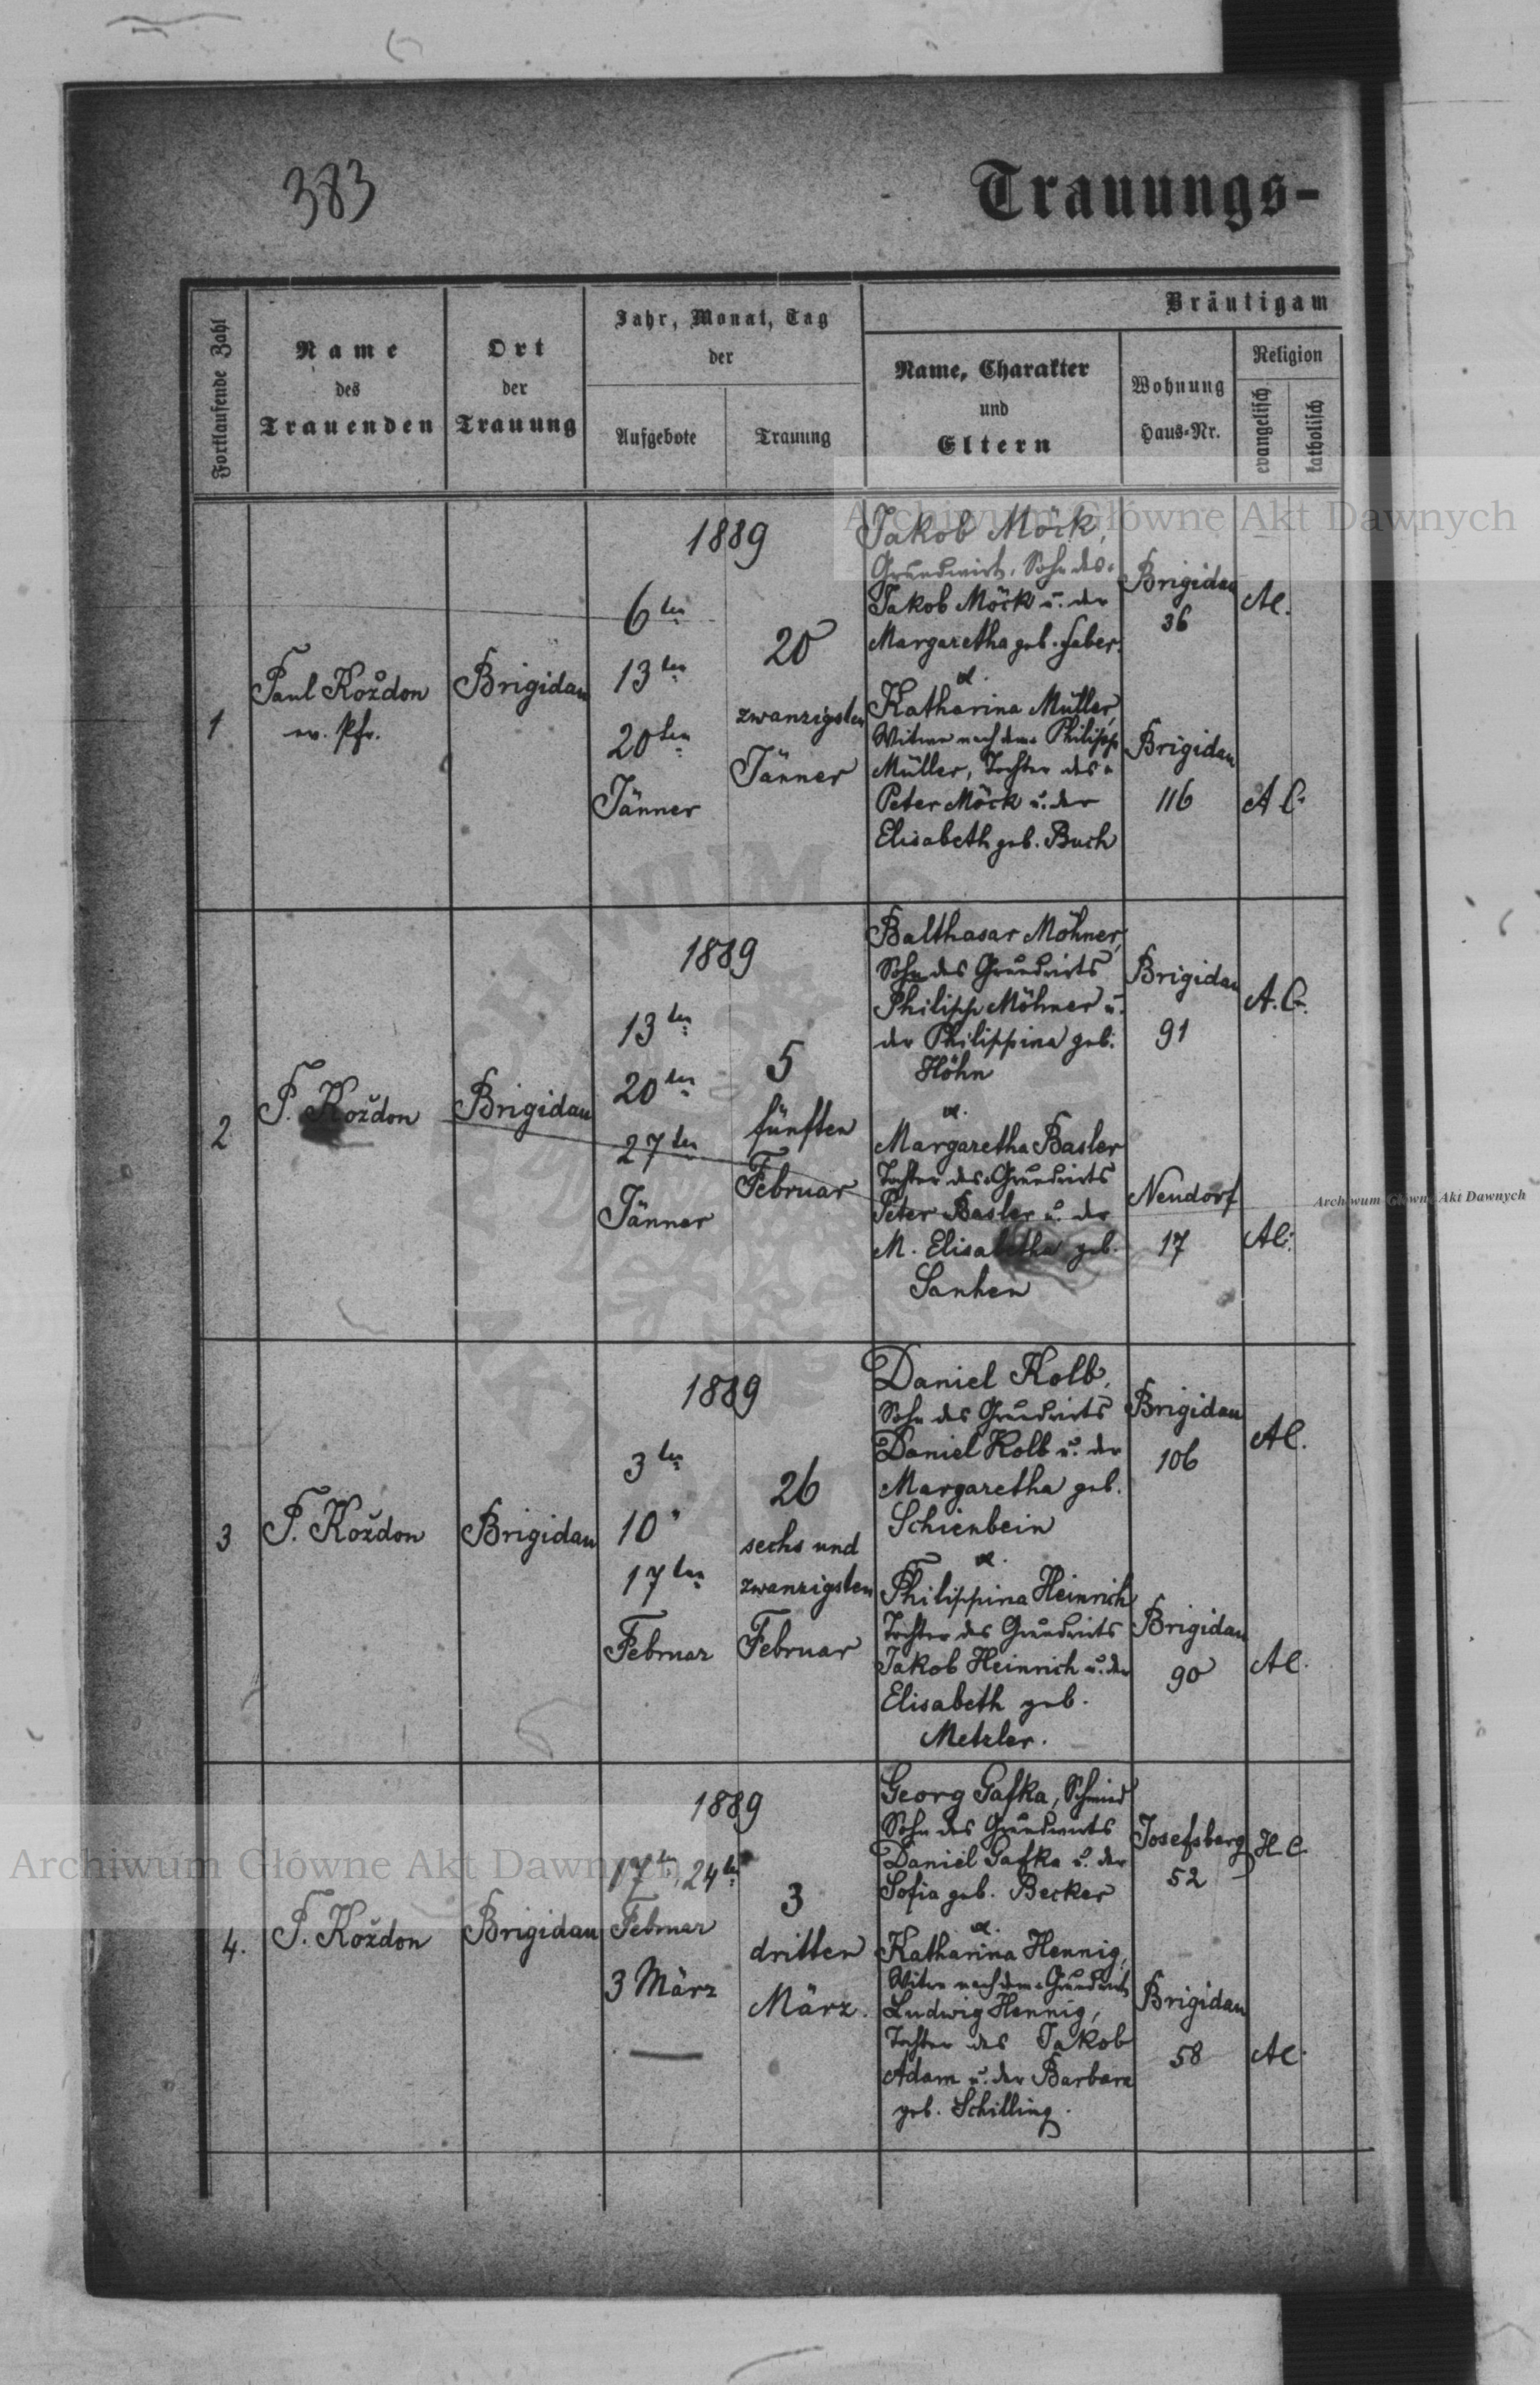 383
Trauungs-
Fortlaufende Zahl
Name
des
Trauenden
Ort
der
Trauung
Jahr, Monat, Tag
der
Aufgebote
Trauung
Bräutigam
Name, Charakter
und
Eltern
Wohnung
Haus-Nr.
Religion
evangelisch
katholisch
1
Paul Koždon
ev. Pfr.
Brigidau
1889
6ten
13ten
20ten
Jänner
20
zwanzigsten
Jänner
Jakob Möck,
Grundwirt, Sohn des
Jakob Möck u. der
Margaretha geb. Faber.
u.
Katharina Müller,
Witwe nach dem Philipp
Müller, Tochter des
Peter Möck u. der
Elisabeth geb. Buch
Brigidau
36
Brigidau
116
AC.
AC.
2
P. Koždon
Brigidau
1889
13ten
20ten
27ten
Jänner
5
fünften
Februar
Balthasar Möhner,
Sohn des Grundwirts
Philipp Möhner u.
der Philippina geb.
Höhn
u.
Margaretha Basler
Tochter des Grundwirts
Peter Basler u. der
M. Elisabetha geb.
Sanhen
Brigidau
91
Neudorf
17
A.C.
AC.
3
P. Koždon
Brigidau
1889
3ten
10"
17ten
Februar
26
sechs und
zwanzigsten
Februar
Daniel Kolb,
Sohn des Grundwirts
Daniel Kolb u. der
Margaretha geb.
Schienbein
u.
Philippina Heinrich
Tochter des Grundwirts
Jakob Heinrich u. der
Elisabeth geb.
Metzler.
Brigidau
106
Brigidau
90
AC.
AC.
4.
P. Koždon
Brigidau
1889
17ten, 24ten
Februar
3 März
3
dritten
März.
Georg Gafka, Schmied
Sohn des Grundwirts
Daniel Gafka u. der
Sofia geb. Becker
u.
Katharina Hennig,
Witwe nach dem Grundwirt
Ludwig Hennig,
Tochter des Jakob
Adam u. der Barbara
geb. Schilling.
Josefsberg
52
Brigidau
58
HC
AC.
Archiwum Główne Akt Dawnych
Archiwum Główne Akt Dawnych
Archiwum Główne Akt Dawnych